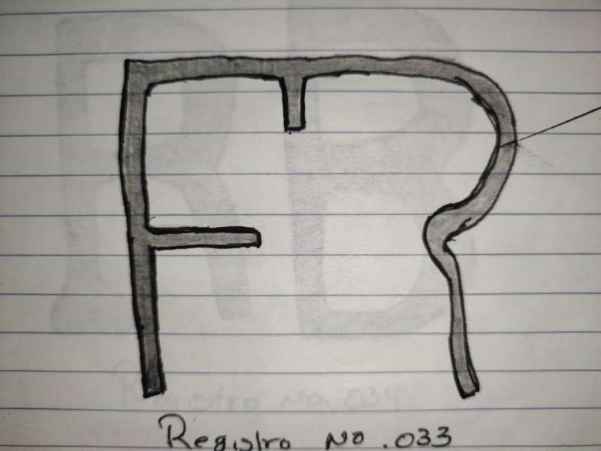 Registro No .033